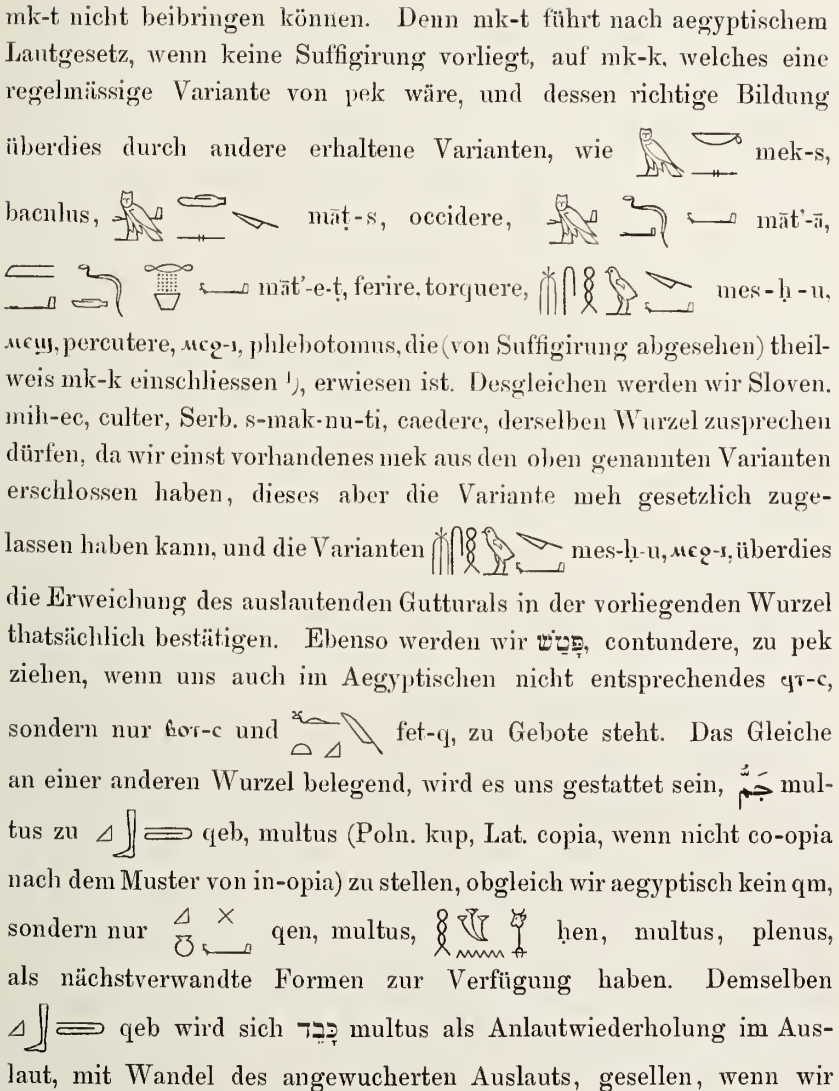 mk-t nicht beibringen können. Denn mk-t führt nach aegyptischem
Lautgesetz, wenn keine Suffigirung vorliegt, auf mk-k, welches eine
regelmässige Variante von pek wäre, und dessen richtige Bildung
überdies durch andere erhaltene Varianten, wie mek-s,
baculus, māṭ-s, occidere, māt’-ā,
māt’-e-ṭ, ferire, torquere, mes-ḥ-u,
ⲙⲉϣ, percutere, ⲙⲉϩ-ⲓ, phlebotomus, die (von Suffigirung abgesehen) theil-
weis mk-k einschliessen ¹), erwiesen ist. Desgleichen werden wir Sloven.
mih-ec, culter, Serb. s-mak-nu-ti, caedere, derselben Wurzel zusprechen
dürfen, da wir einst vorhandenes mek aus den oben genannten Varianten
erschlossen haben, dieses aber die Variante meh gesetzlich zuge-
lassen haben kann, und die Varianten mes-ḥ-u, ⲙⲉϩ-ⲓ, überdies
die Erweichung des auslautenden Gutturals in der vorliegenden Wurzel
thatsächlich bestätigen. Ebenso werden wir פָּטַשׁ, contundere, zu pek
ziehen, wenn uns auch im Aegyptischen nicht entsprechendes ϥⲧ-ⲥ,
sondern nur ϐⲟⲧ-ⲥ und fet-q, zu Gebote steht. Das Gleiche
an einer anderen Wurzel belegend, wird es uns gestattet sein, جَمٌّ mul-
tus zu qeb, multus (Poln. kup, Lat. copia, wenn nicht co-opia
nach dem Muster von in-opia) zu stellen, obgleich wir aegyptisch kein qm,
sondern nur qen, multus, ḥen, multus, plenus,
als nächstverwandte Formen zur Verfügung haben. Demselben
qeb wird sich כָּבֵד multus als Anlautwiederholung im Aus-
laut, mit Wandel des angewucherten Auslauts, gesellen, wenn wir